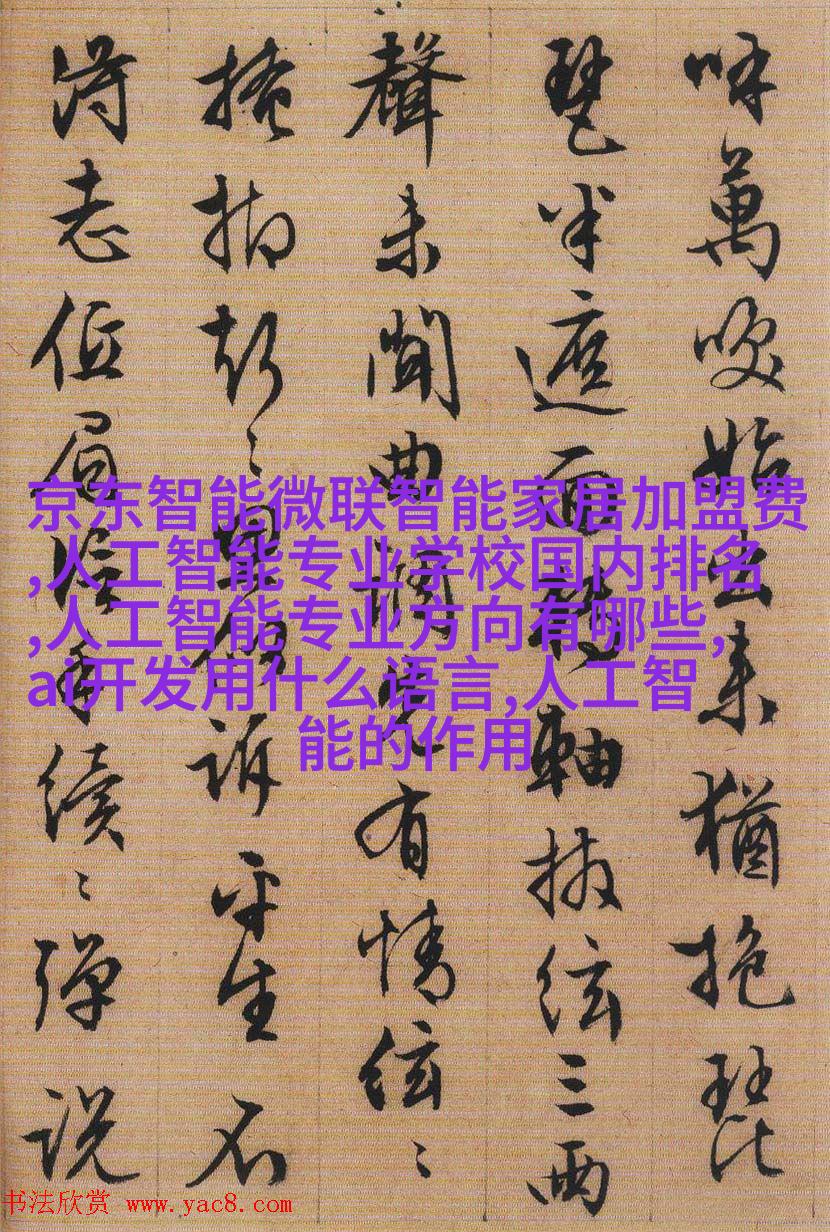 呼萬喚始出来猶抱琵
琶半遮面轉軸撥絃三两
聲未聞曲調先有情絃〻
掩抑声〻思似訴平生不
得志低眉信手續〻彈説
京东智能微联智能家居加盟费
,人工智能专业学校国内排名
,人工智能专业方向有哪些,
ai开发用什么语言,人工智
能的作用
书法欣赏 www.yac8.com